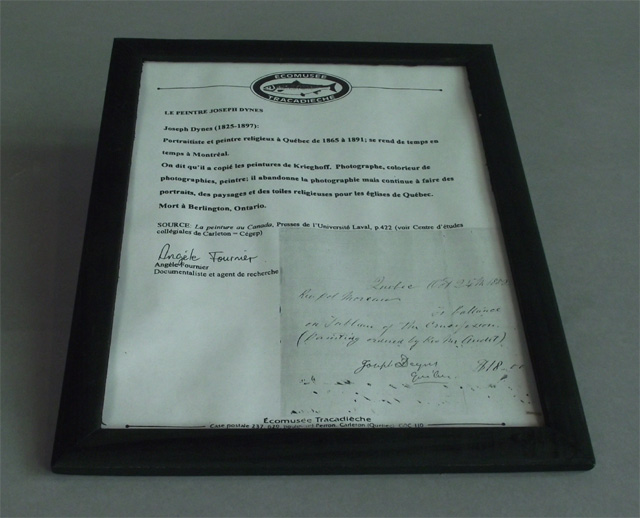 ÉCOMUSÉE
TRACADIÈCHE
LE PEINTRE JOSEPH DYNES
Joseph Dynes (1825-1897):
Portraitiste et peintre religieux à Québec de 1865 à 1891; se rend de temps en
temps à Montréal.
On dit qu'il a copié les peintures de Krieghoff. Photographe, colorieur de
photographies, peintre; il abandonne la photographie mais continue à faire des
portraits, des paysages et des toiles religieuses pour les églises de Québec.
Mort à Berlington, Ontario.
SOURCE: La peinture au Canada, Presses de l'Université Laval, p.422 (voir Centre d'études
collégiales de Carleton – Cégep)
Angèle Fournier
Angèle Fournier
Documentaliste et agent de recherche
Quebec
To balance
on Tableau of the
(Painting ordered by Rev Mr Audet)
Joseph Dynes
Quebec
Écomusée Tracadièche
Case postale Carleton (Québec)